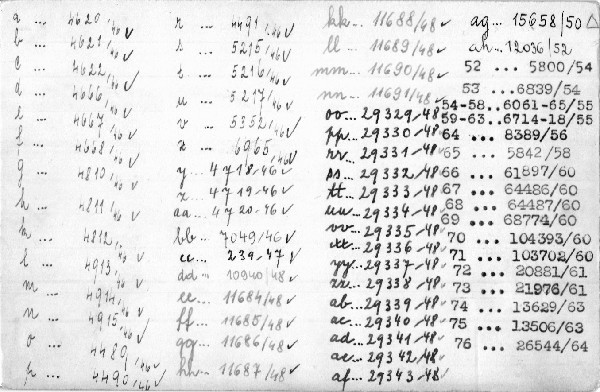 a ... 4620/46 v
b ... 4621/46 v
c ... 4622/46 v
d ... 4666/46 v
e ... 4667/46 v
f ... 4668/46 v
g ... 4810/46 v
h ... 4811/46 v
k ... 4812/46 v
l ... 4913/46 v
m ... 4914/46 v
n ... 4915/46 v
o ... 4489/46 v
p ... 4490/46 v
r ... 4491/46 v
s ... 5215/46 v
t ... 5216/46 v
u ... 5217/46 v
v ... 5352/46 v
x ... 6965/46 v
y ... 4718/46 v
z ... 4719/46 v
aa ... 4720/46 v
bb ... 7049/46 v
cc ... 239/47 v
dd ... 10940/48 v
ee ... 11684/48 v
ff ... 11685/48 v
gg ... 11686/48 v
hh ... 11687/48 v
kk ... 11688/48 v
ll ... 11689/48 v
mm ... 11690/48 v
nn ... 11691/48 v
oo ... 29329/48 v
pp ... 29330/48 v
rr ... 29331/48 v
ss ... 29332/48 v
tt ... 29333/48 v
uu ... 29334/48 v
vv ... 29335/48 v
xx ... 29336/48 v
yy ... 29337/48 v
zz ... 29338/48 v
ab ... 29339/48 v
ac ... 29340/48 v
ad ... 29341/48 v
ae ... 29342/48 v
af ... 29343/48 v
ag ... 15658/50
ah ... 12036/52
52 ... 5800/54
53 ... 6839/54
54-58..6061-65/55
59-63..6714-18/55
64 ... 8389/56
65 ... 5842/58
66 ... 61897/60
67 ... 64486/60
68 ... 64487/60
69 ... 68774/60
70 ... 104393/60
71 ... 103702/60
72 ... 20881/61
73 ... 21976/61
74 ... 13629/63
75 ... 13506/63
76 ... 26544/64